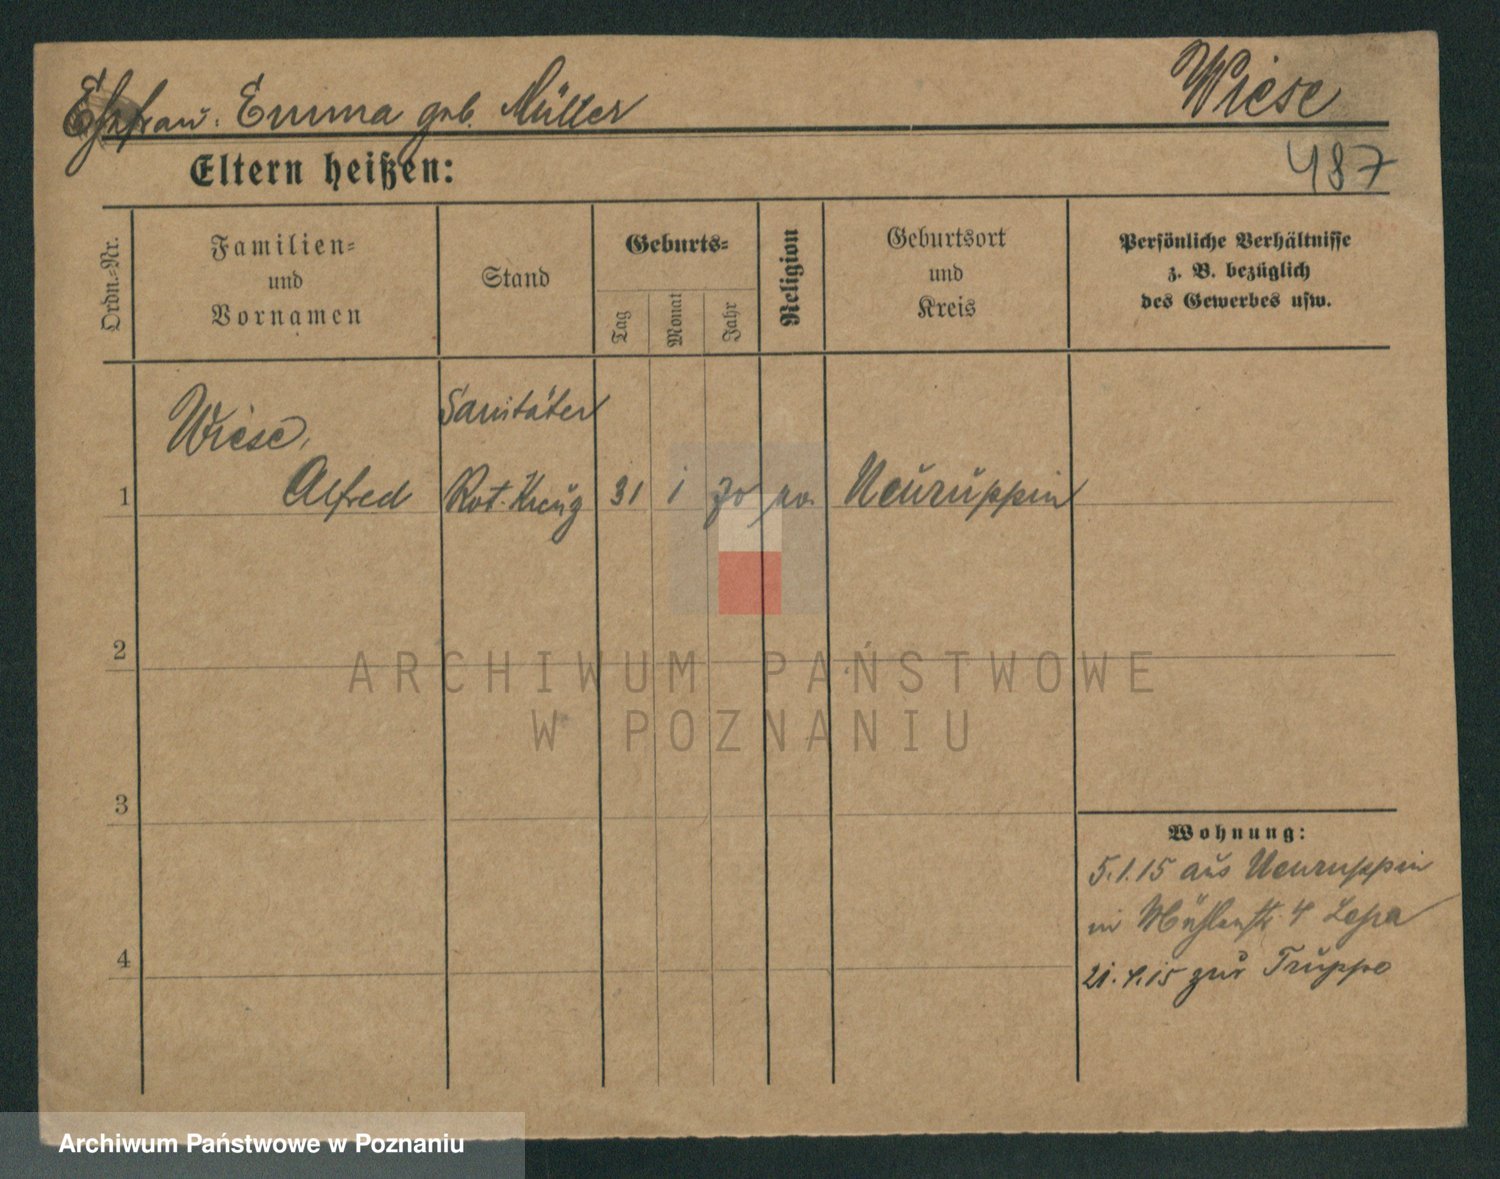 Ehefrau: Emma geb. Müller
Wiese
487
Eltern heißen:
Ordn.-Nr.
Familien-
und
Vornamen
Stand
Geburts-
Tag
Monat
Jahr
Religion
Geburtsort
und
Kreis
Persönliche Verhältnisse
z. B. bezüglich
des Gewerbes usw.
Wiese,
Sanitäter
1
Alfred
Rot. Kreuz
31
1
Neuruppin
2
3
4
Wohnung:
5.1.15 aus Neuruppin
in Mühlenstr. 4
21.4.15 zur Truppe
ARCHIWUM PAŃSTWOWE
W POZNANIU
Archiwum Państwowe w Poznaniu